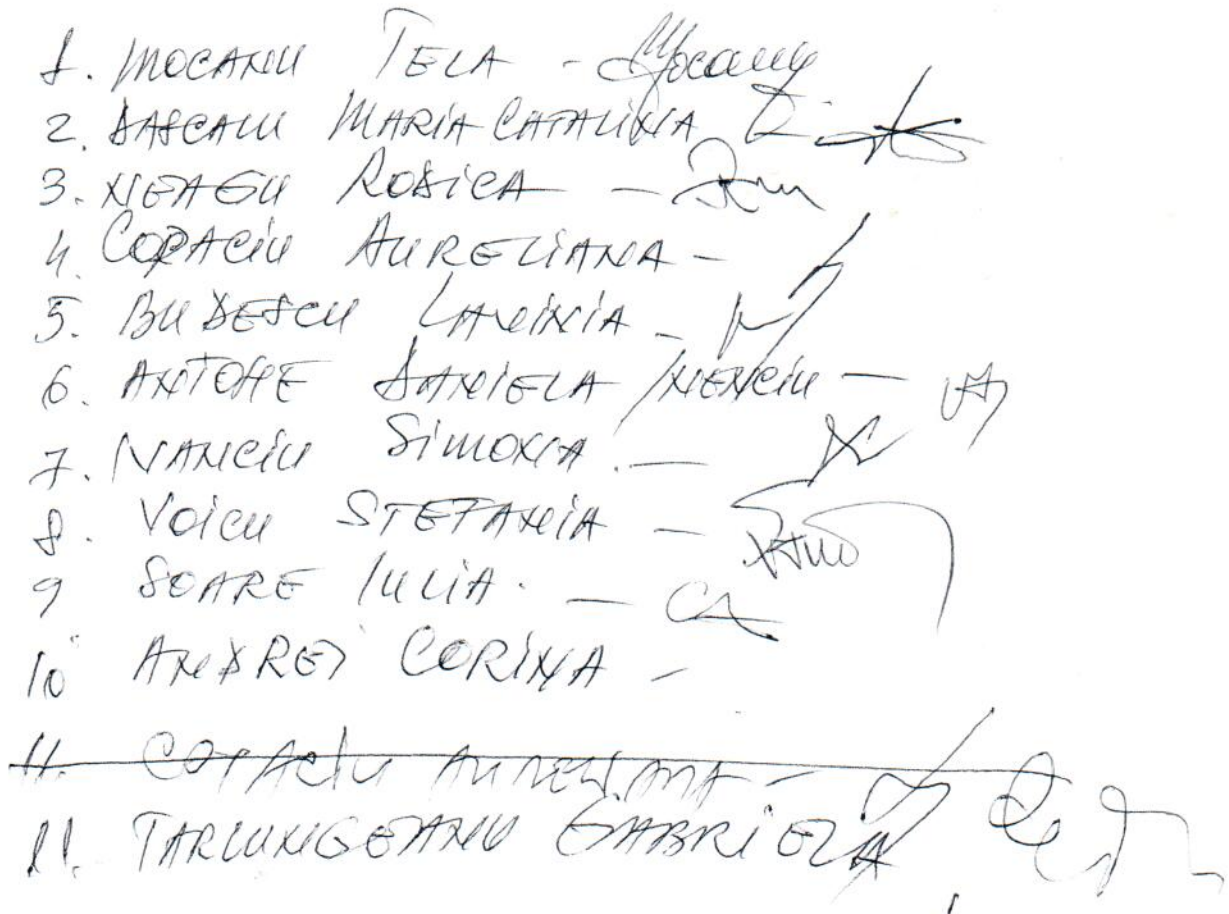 1. MOCANU TELA - Mocanu
2. DASCALU MARIA CATALINA
3. NEAGU RODICA -
4. COPACIU AURELIANA -
5. BUDESCU LAVINIA -
6. ANTOHE DANIELA / NENCIU -
7. NANCIU SIMONA. -
8. VOICU STEFANIA -
9 SOARE IULIA. -
10 ANDREI CORINA -
11. COPACIU AURELIANA -
11. TARLUNGEANU GABRIELA